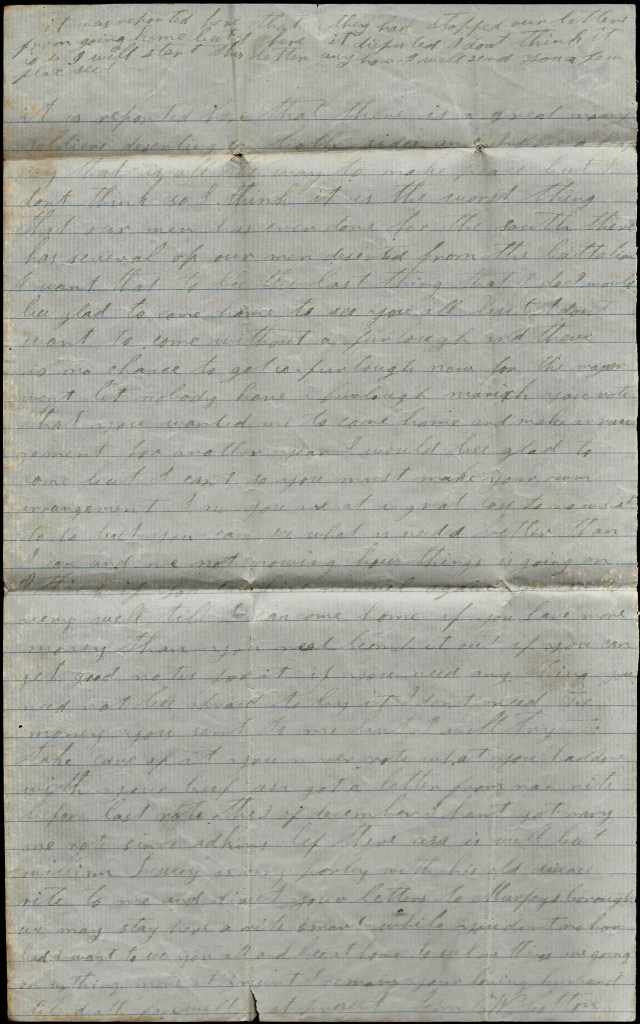 it was reported here that they had stopped our letters
from going home but here it disputed I dont think it
is so I will start this letter any how I will send you a few
seed
it is reported here that there is a great many
soldiers deserting on both sides and
say that is all the way to make peace but I
dont think so I think it is the worst thing
that our men has ever done for the south there
has several of our men deserted from this battalion
I want that to be the last thing that I do I would
be glad to come home to see you all but I dont
want to come without a furlough and there
is no chance to get a furlough now for the major
wont let nobody have a furlough you rote
that you wanted me to come home and make arran
gement for another year I would bee glad to
come but I cant so you must make your own
arrangement I no you are at a great loss to now what
to do but you can see what is needed better than
I can and me not nowing how things is going on
I think if you
very well till I can come home if you have more
money than you need lend it out if you can
get good notes for it if you need any thing you
need not bee afraid to buy it I dont need the
money you sent to me but I will try to
take care of it you never rote what you had done
with your beef asa got a letter from nan rite
before last rote the 2 of december I hant got nary
one rote since adkins left there asa is well but
william is very porley with his old disease
rite to me and direct your letters to Murfeysborough
we may stay here a rite smart while you dont no how
bad I want to see you all and bee at home to see how things are going
on nothing more at present I remain your loving husband
til death farewell at present